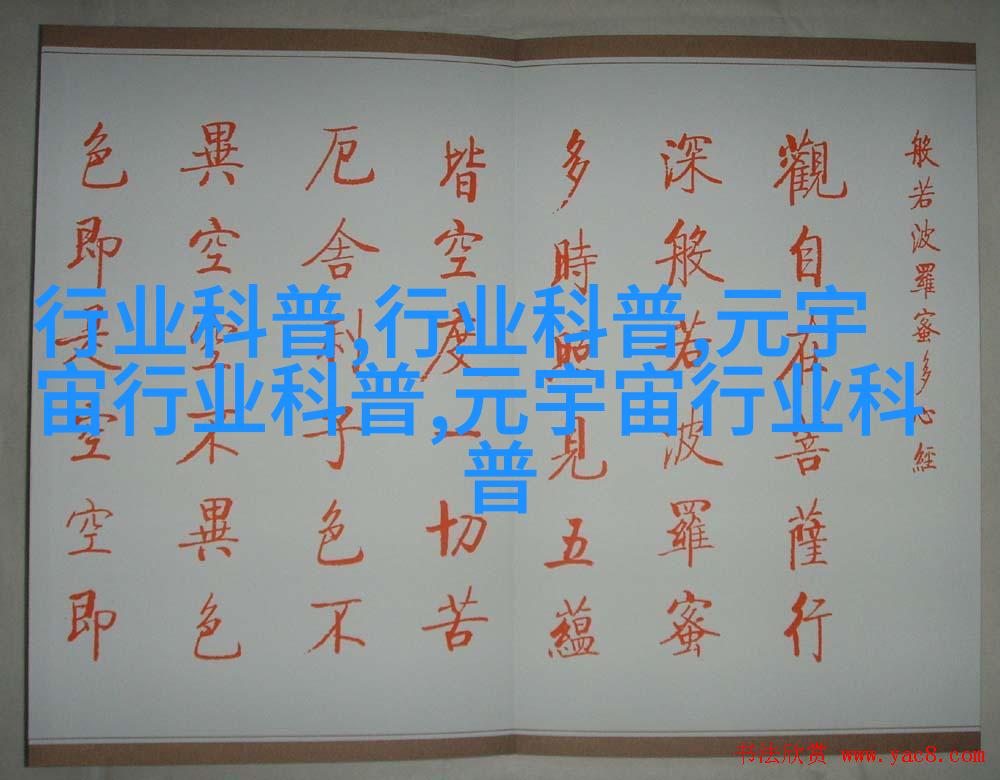 般若波羅蜜多心經
觀自在菩薩行
深般若波羅蜜
多時照見五蘊
皆空度一切苦
厄舍利子色不
異空空不異色
色即是空空即
行业科普,行业科普,元宇
宙行业科普,元宇宙行业科
普
书法欣赏 www.yac8.com